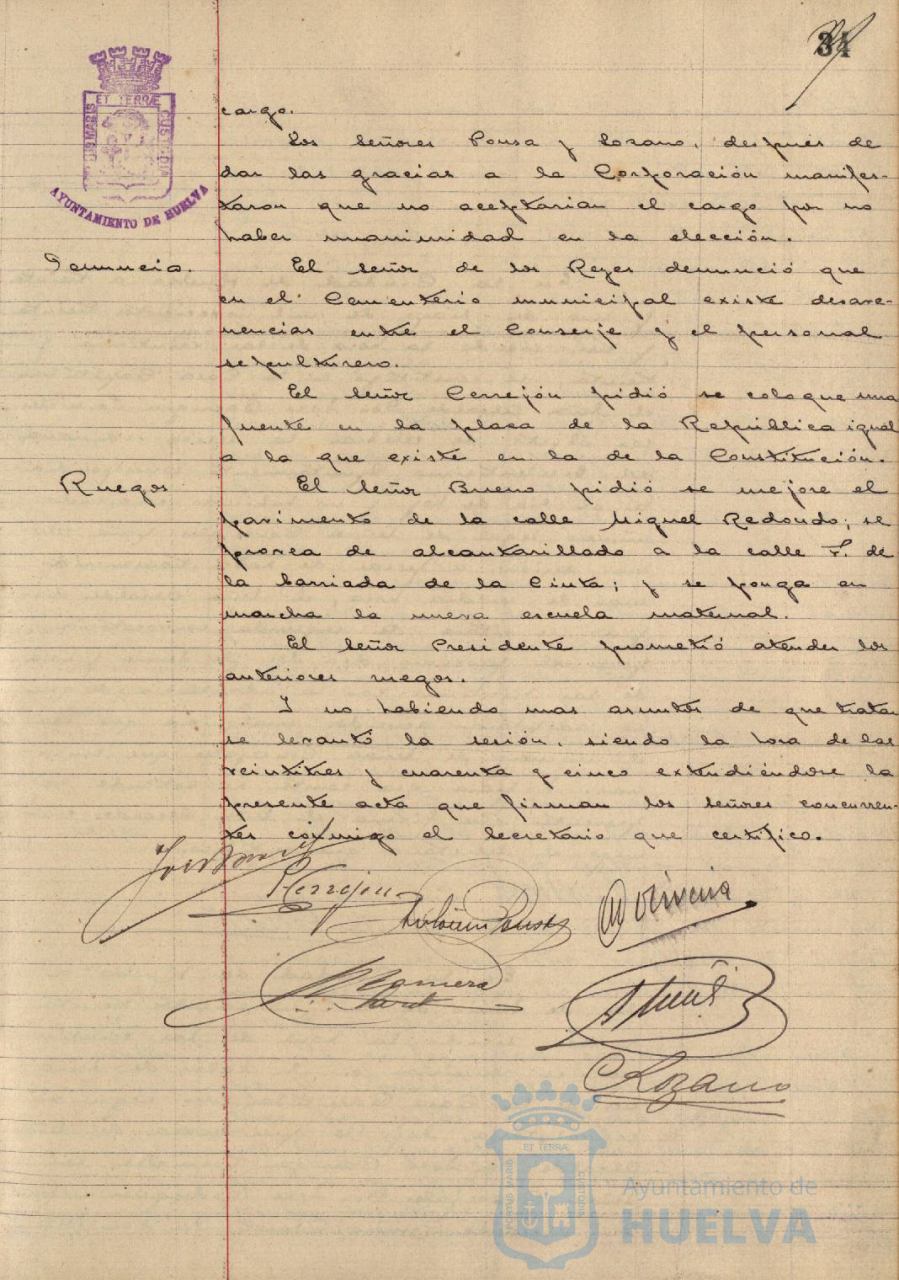 34
PORTUS MARIS ET TERRÆ CUSTODIA
AYUNTAMIENTO DE HUELVA
cargo.
Los señores Pousa y Lozano, después de
dar las gracias a la Corporación manifes-
taron que no aceptarian el cargo por no
haber unanimidad en la elección.
Denuncia.
El señor de los Reyes denunció que
en el Cementerio municipal existe desave-
nencias entre el Conserje y el personal
sepulturero.
El señor Cerrejón pidió se coloque una
fuente en la plaza de la República igual
a la que existe en la de la Constitución.
Ruegos
El señor Bueno pidió se mejore el
pavimento de la calle Miguel Redondo; se
provea de alcantarillado a la calle F. de
la barriada de la Cinta; y se ponga en
marcha la nueva escuela maternal.
El señor Presidente prometió atender los
anteriores ruegos.
Y no habiendo mas asuntos de que tratar
se levantó la sesión, siendo la hora de las
veintitres y cuarenta y cinco extendiéndose la
presente acta que firman los señores concurren-
tes conmigo el Secretario que certifico.
Cerrejon
Pousa
Oliveira
C Lozano
PORTUS MARIS ET TERRÆ CUSTODIA
Ayuntamiento de
HUELVA